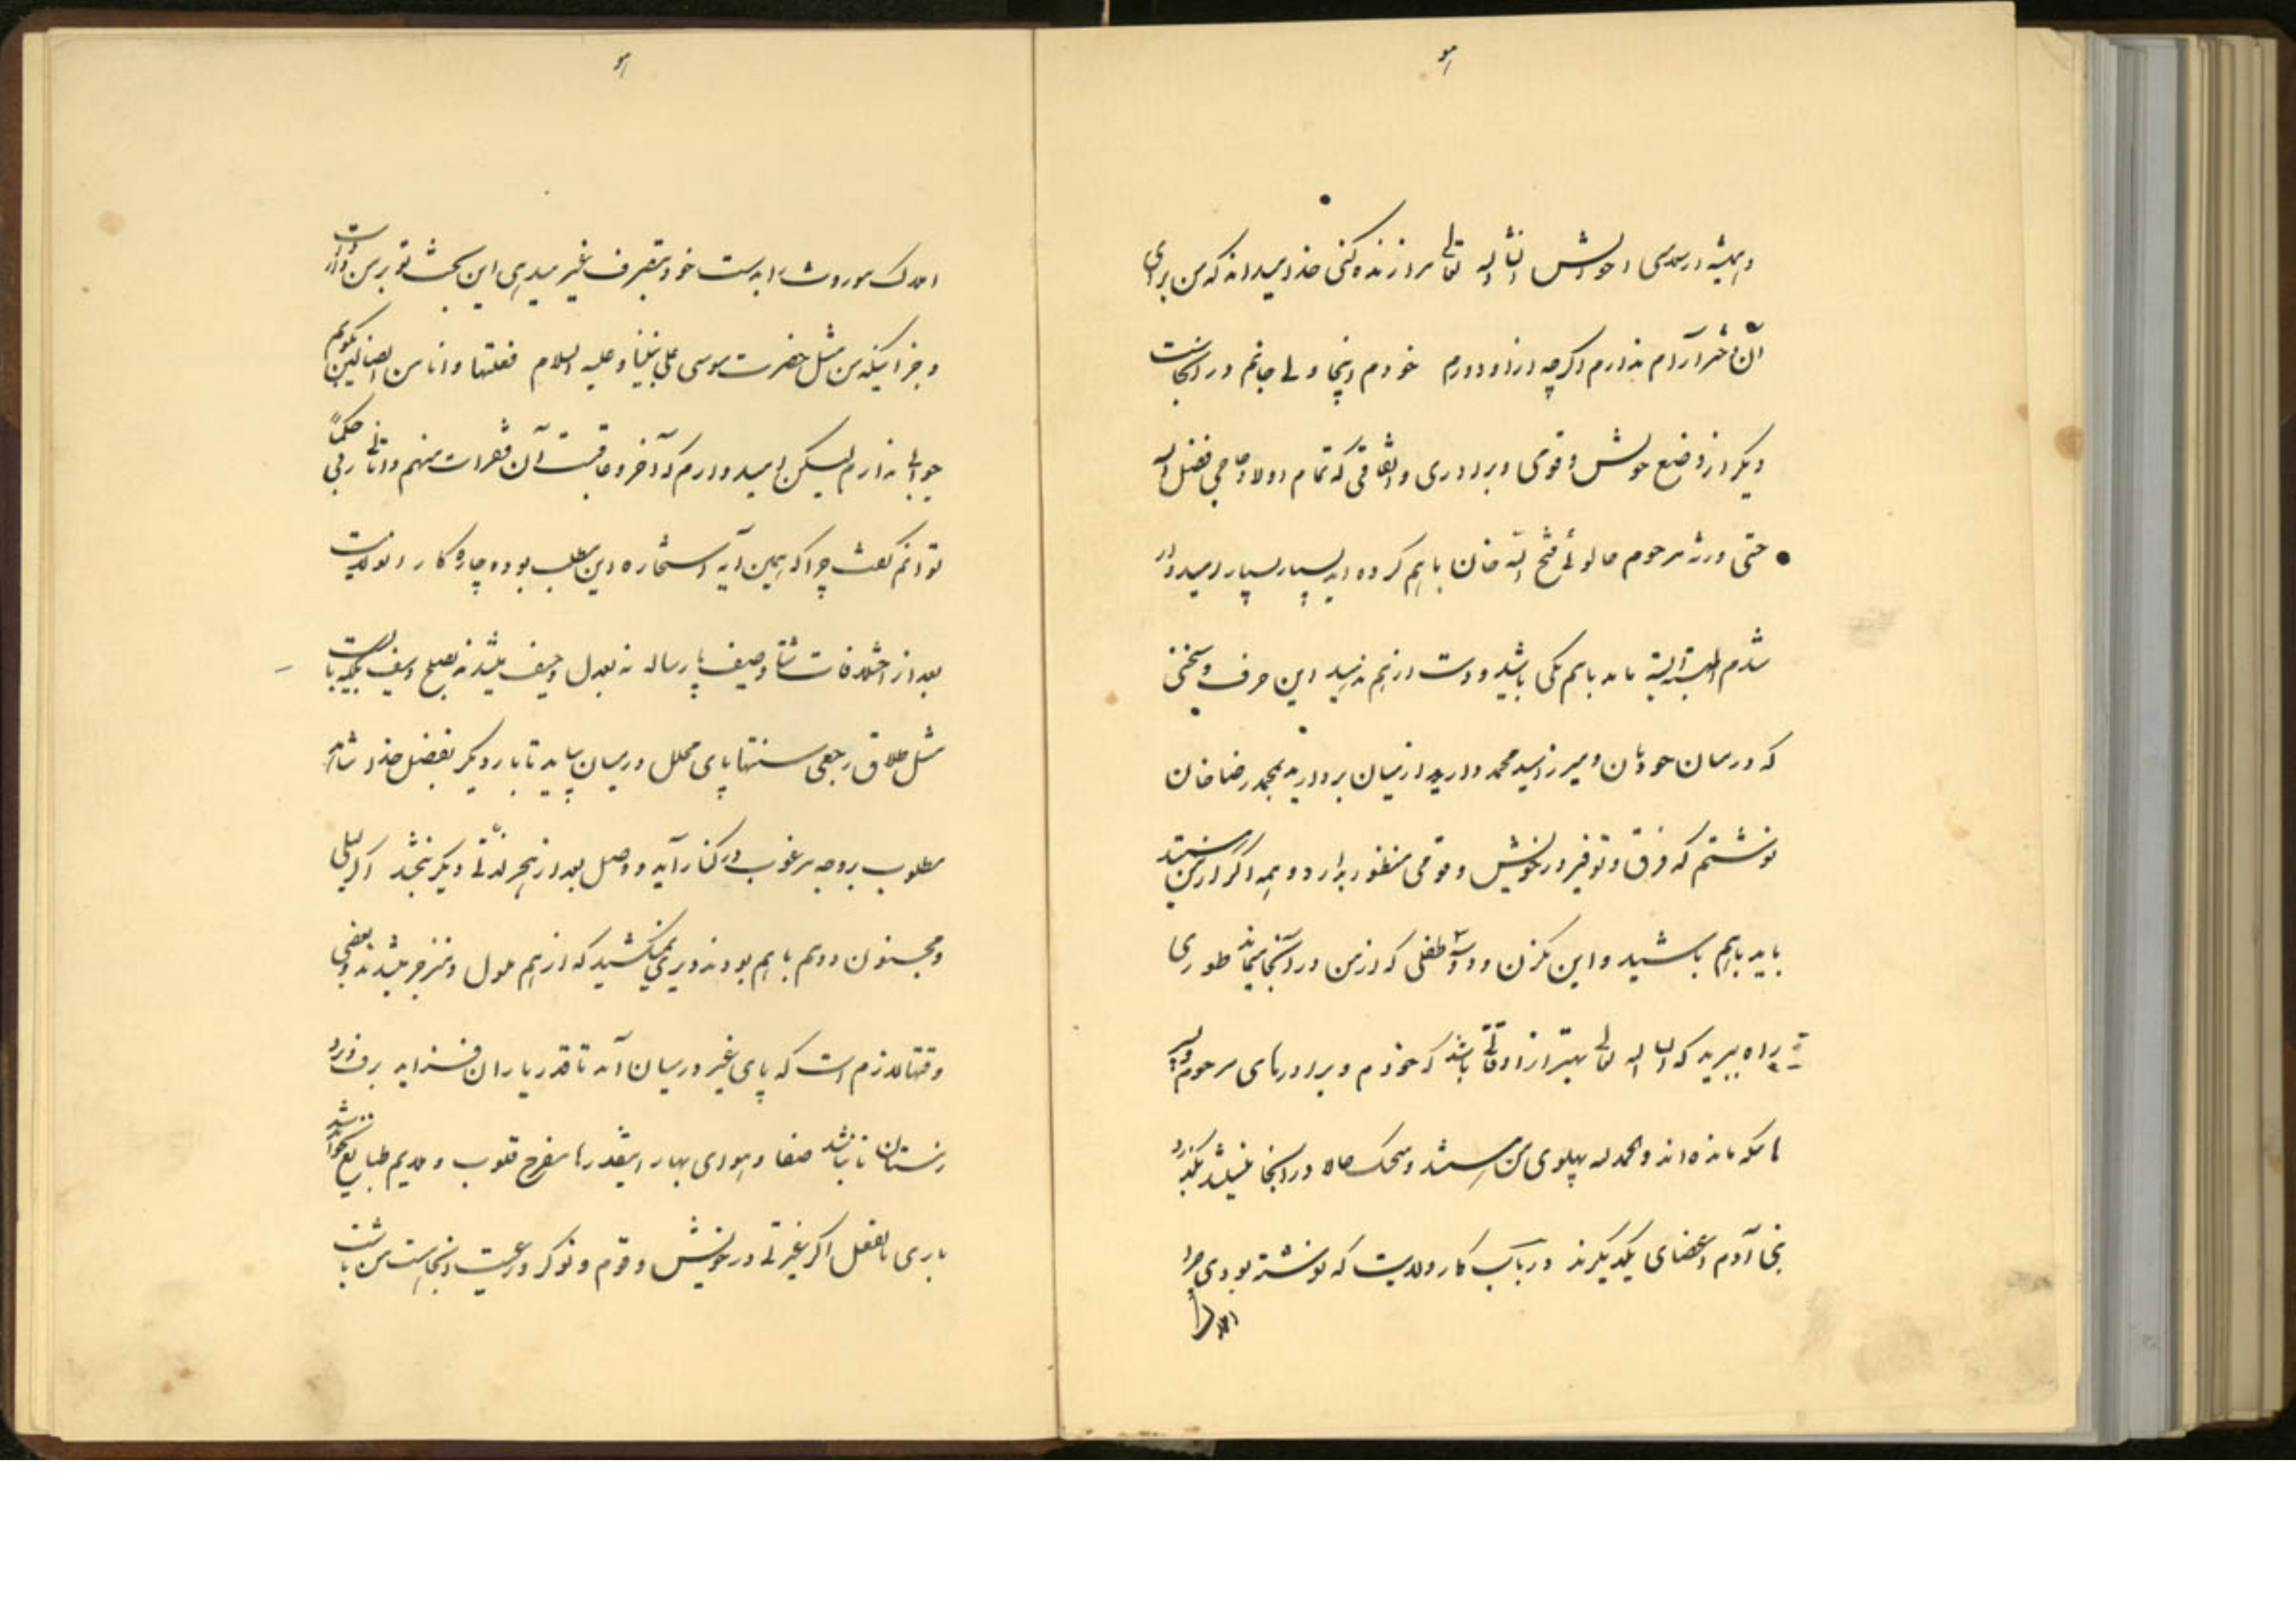 و همیشه در سلامتی احوالش انشاالله تعالی مرا زنده کنی خدا میداند که من برای
آن دختر آرام ندارم اگرچه از او دورم خودم اینجا ولی جانم در آنجاست
دیگر از وضع خویش و قومی و برادری و اتفاقی که تمام اولاد حاجی فضل الله
حتی ورثه مرحوم خالوئی فتح الله خان باهم کرده اید بسیار بسیار امیدوار
شدم البته البته باید باهم یکی باشید و دست از هم ندهید این حرف و سخنی
که در میان خودتان و میرزا سید محمد دارید از میان بردارید بمحمد رضا خان
نوشتم که فرق و توفیر در خویش و قومی منظور ندارد و همه اگر از من هستید
باید باهم باشید و این یکزن و دو سه طفلی که از من در آنجا میماند طوری
راه ببرید که انشاالله تعالی بهتر از اوقاتی باشد که خودم و برادرهای مرحوم و پسر
هائیکه مانده اند و الحمدلله پهلوی من هستند و یحکماه در اینجا بکذرد
بنی آدم اعضای یکدیگرند در باب کار ولایت که نوشته بودی چرا
املاک
املاک موروث را بدست خود بتصرف غیر میدهی این بحث تو بر من وارد است
و جز اینکه من مثل حضرت موسی علی نبینا و علیه السلام فعلتها و انا من الضالین بگویم
جوابی ندارم لیکن امیدوارم که آخر و عاقبت آن ففررت منهم و اتانی ربی حکماً
توانم گفت چرا که همین آیه استخاره این مطلب بوده چاره کار ولایت
بعد از اختلافات شتا و صیف پارساله نه بعدل و حیف میشد نه بصلح و سیف میبایست
مثل طلاق رجعی سنتها پای محلل در میان بیاید تا بار دیگر بفضل خدا شاهد
مطلوب بر وجه مرغوب در کنار آید و وصل بعد از هجر لذتی دیگر بخشد اگر لیلی
و مجنون دایم باهم بودند دیری نمیکشید که از هم ملول و منزجر میشدند و بعضی
وقتها لازم است که پای غیر در میان آید تا قدر یاران فزاید برف و سرد
زمستان تا نباشد صفا و هوای بهار اینقدرها مفرح قلوب و ملایم طبایع نخواهد شد
باری بالفعل اگر غیرتی در خویش و قوم و نوکر و رعیت اینجاست من باشت